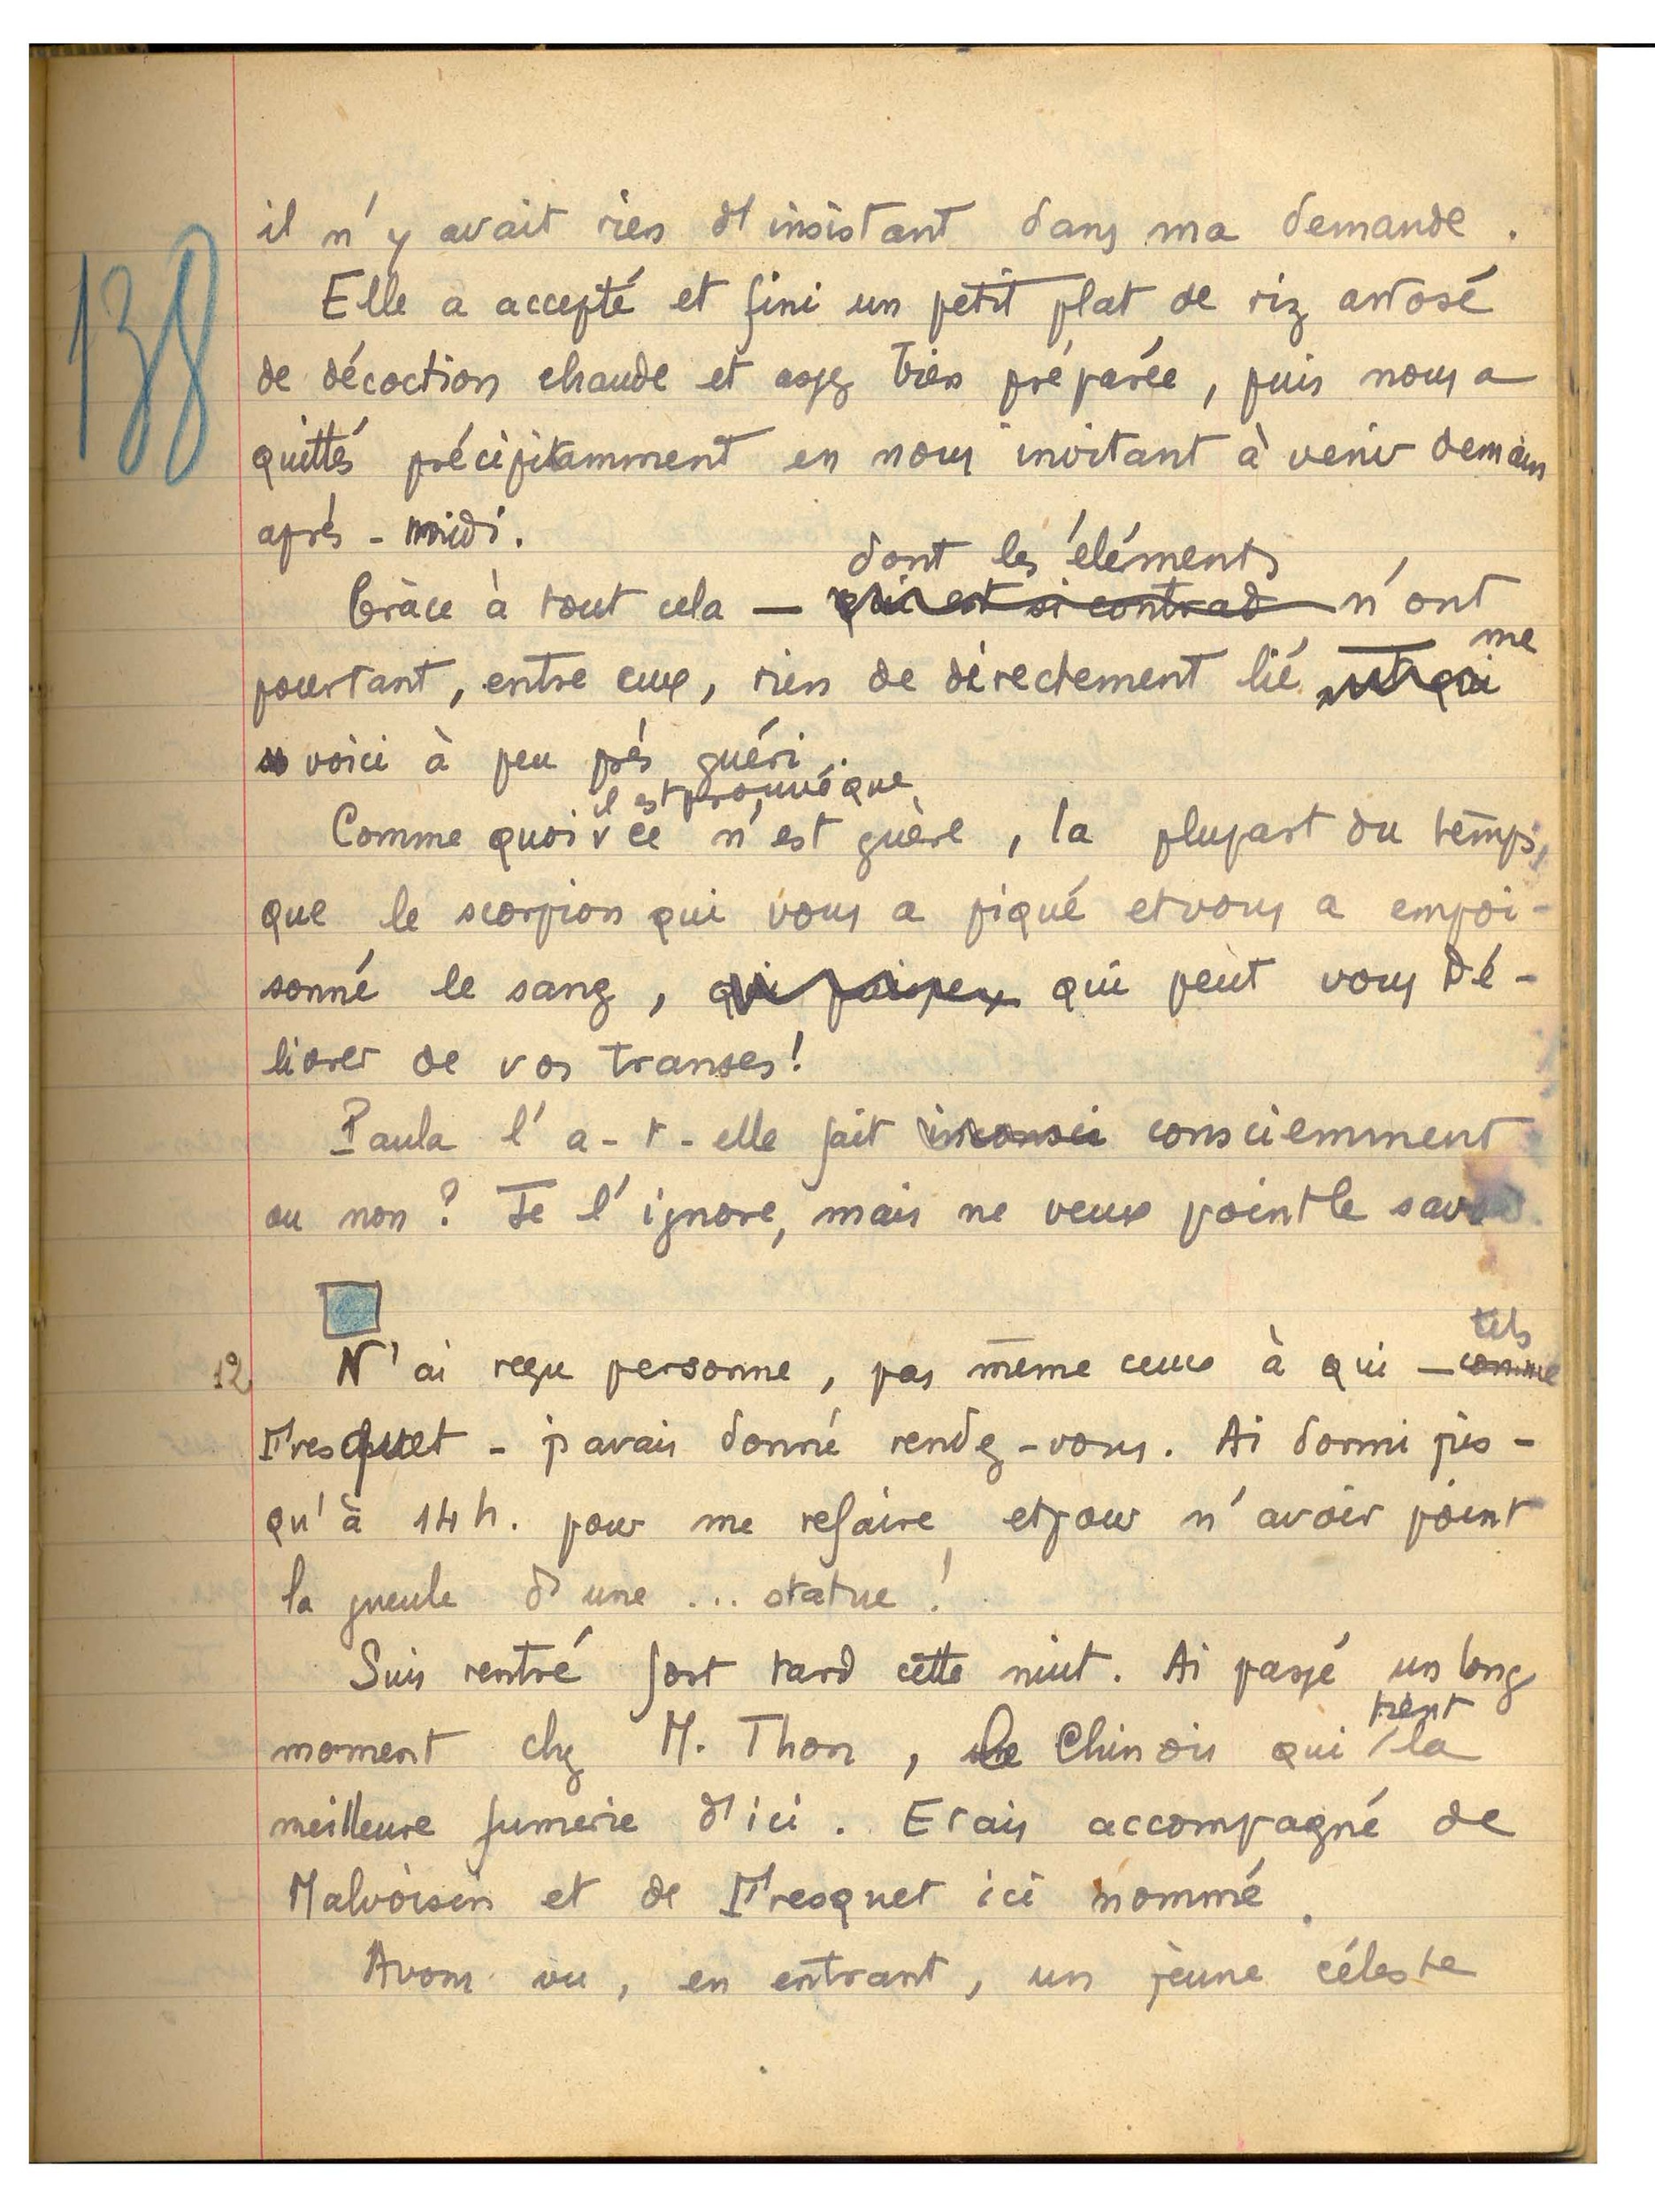 138
il n'y avait rien d'insistant dans ma demande.
Elle a accepté et fini un petit plat de riz arrosé
de décoction chaude et assez bien préparée, puis nous a
quittés précipitamment en nous invitant à venir demain
après-midi.
dont les éléments
Grâce à tout cela — qui est si contrad n'ont
me
pourtant, entre eux, rien de directement lié et qui
voici à peu près guéri.
il est prouvé que
Comme quoi ce n'est guère, la plupart du temps,
que le scorpion qui vous a piqué et vous a empoi-
sonné le sang, qui puisse qui peut vous dé-
livrer de vos transes!
Paula l'a-t-elle fait inconsci consciemment
ou non? Je l'ignore, mais ne veux point le savoir.
tels
12 N'ai reçu personne, pas même ceux à qui — comme
Fresquet - j'avais donné rendez-vous. Ai dormi jus-
qu'à 14 h. pour me refaire et pour n'avoir point
la gueule d'une ... statue!
Suis rentré fort tard cette nuit. Ai passé un long
tient
moment chez M. Thon, le Chinois qui la
meilleure fumerie d'ici. Etais accompagné de
Malvoisin et de Fresquet ici nommé.
Avons vu, en entrant, un jeune céleste